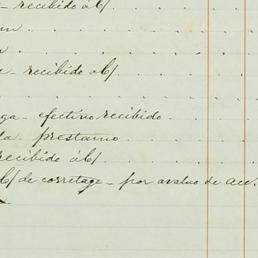 recibido á C/
recibido á C/
ga - efectivo recibido
la - prestamo
recibido á C/
C/ de corretage - por avaluo de acc.